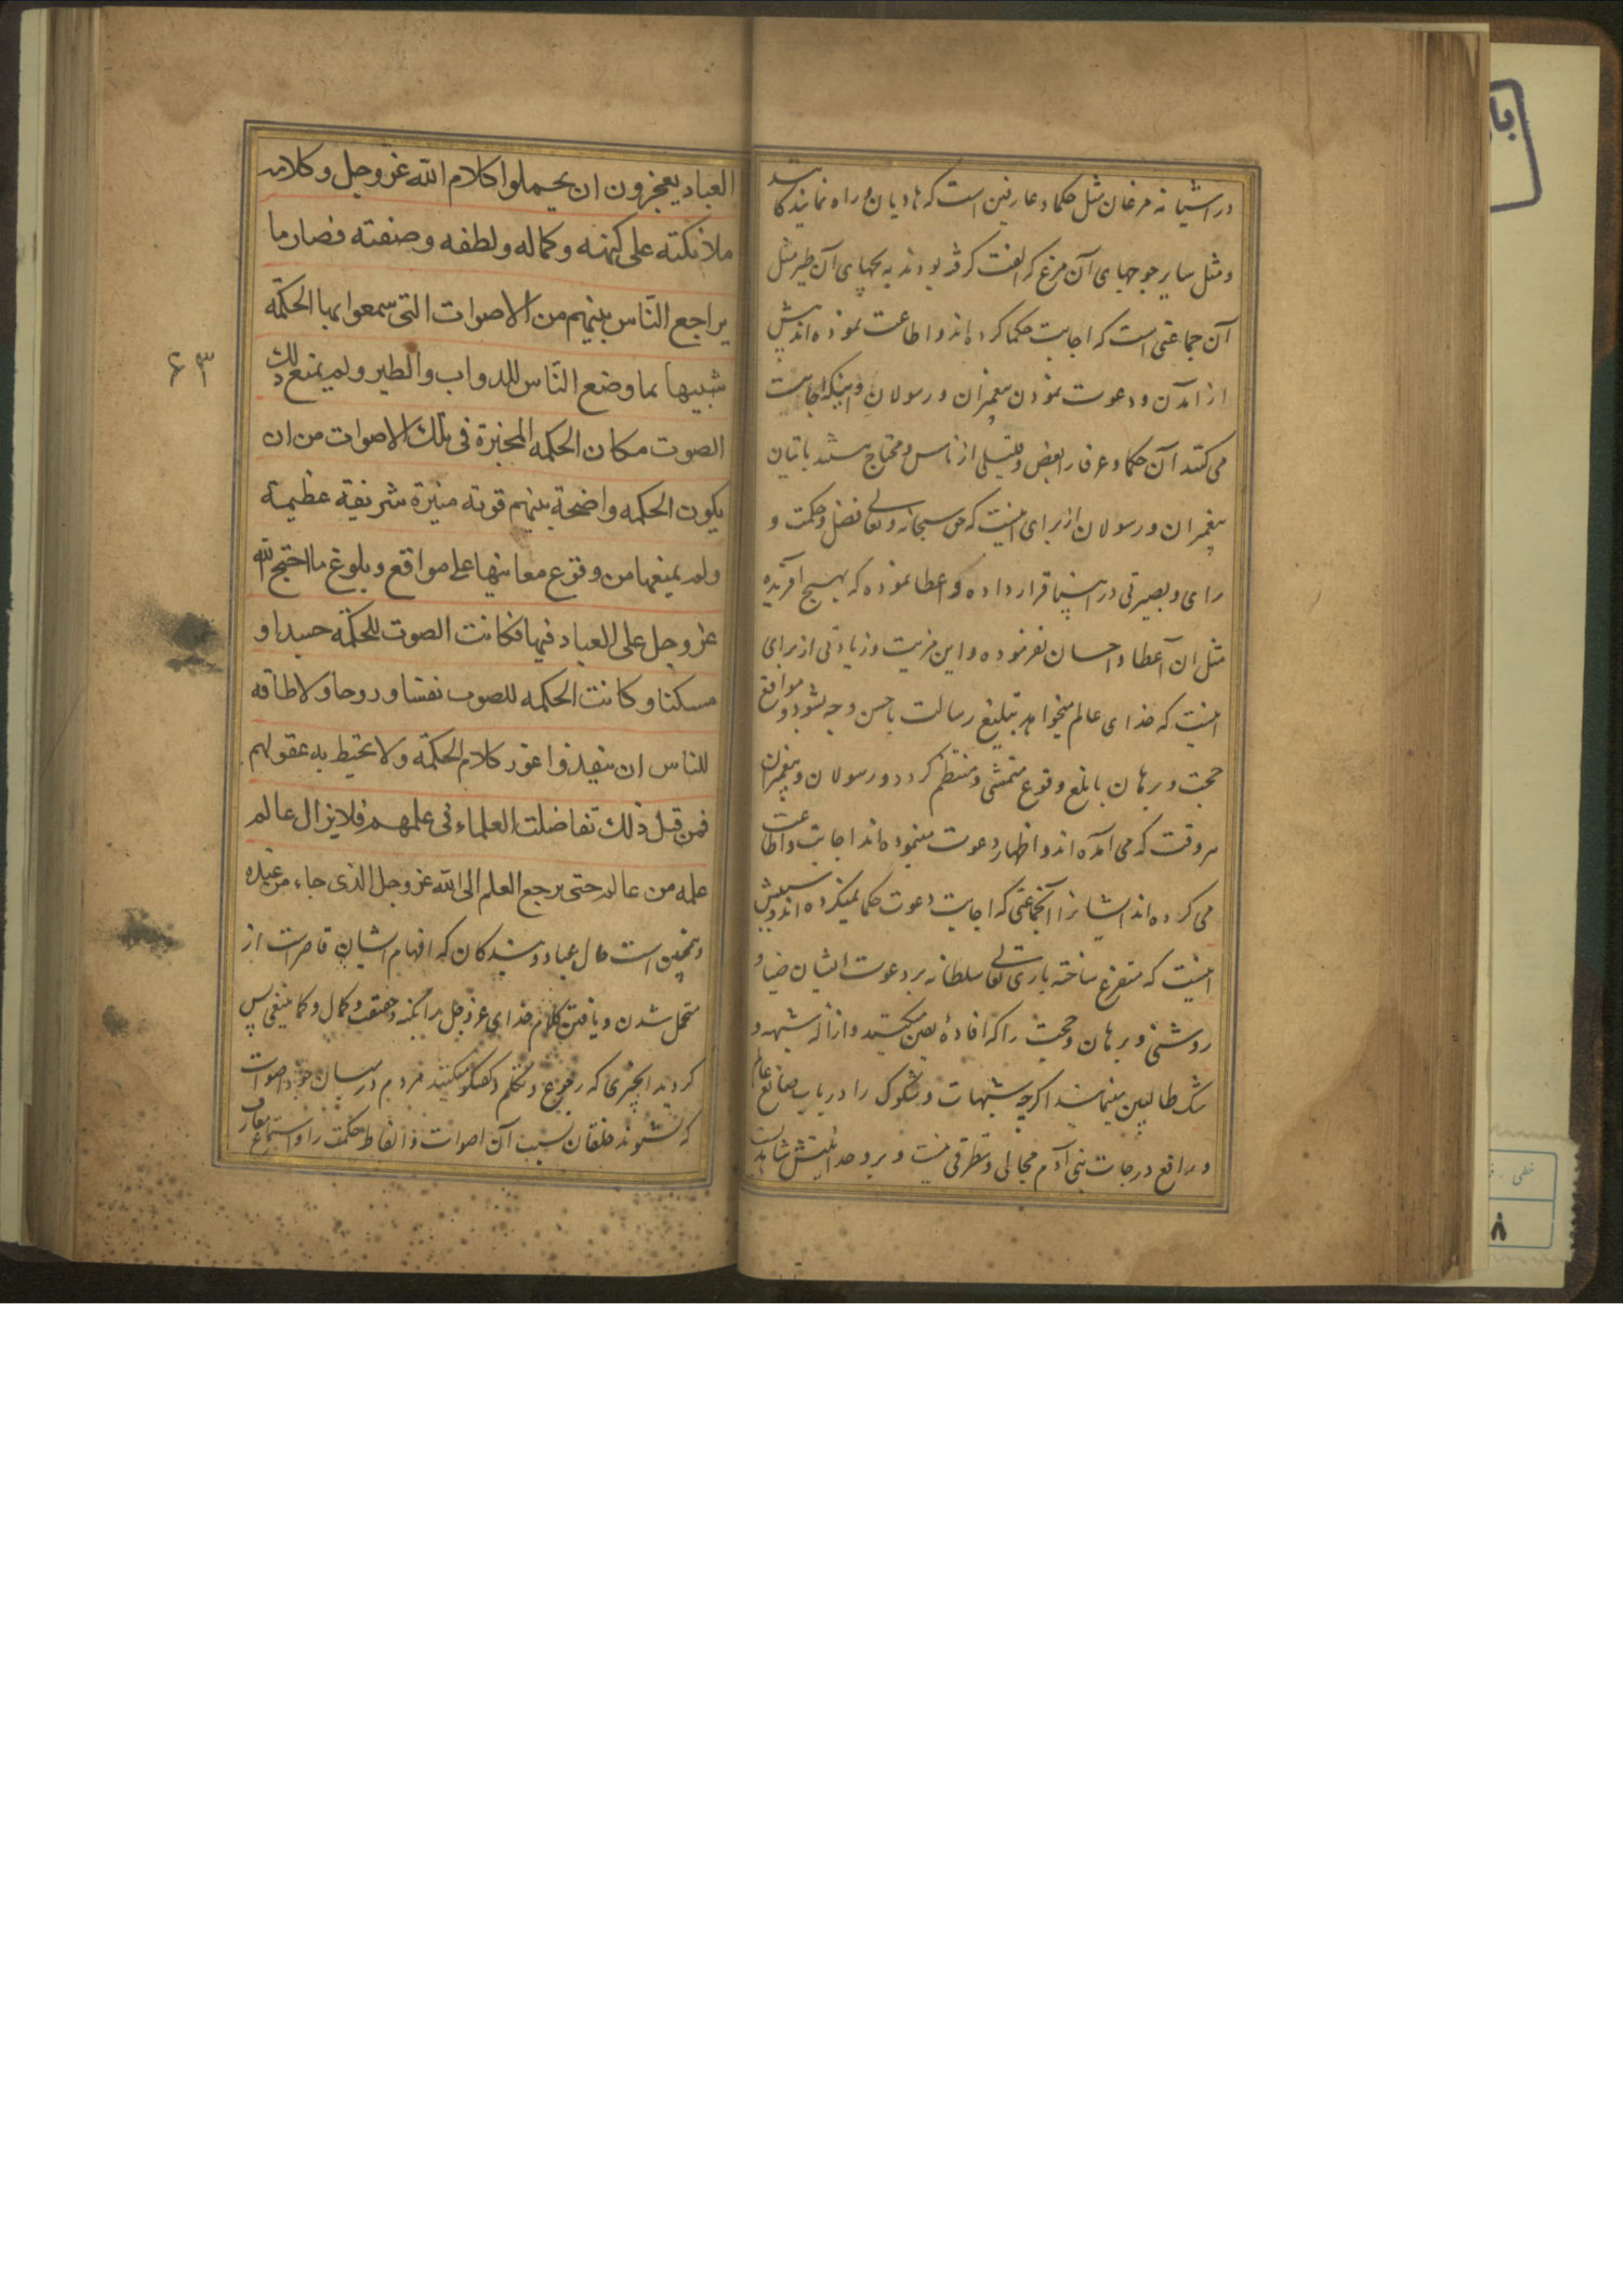 در آشیانه مرغان مثل حکما و عارفین است که هادیان و راه نمایندکانند
و مثل سایر جوجهای آن مرغ که الفت کرفته بودند به بچهای آن طیر مثل
آن جماعتی است که اجابت حکما کرده اند و اطاعت نموده اند پیش
از آمدن و دعوت نمودن پیغمبران و رسولان و اینکه اجابت
می کنند آن حکما و عرفا را بعض و قلیلی از ناس و محتاج هستند باتیان
پیغمبران و رسولان از برای اینست که حق سبحانه و تعالی فضل و حکمت و
رای و بصیرتی در انبیا قرار داده و اعطا نموده که بهیچ آفریده
مثل ان عطا و احسان نفرموده و این مزیت و زیادتی از برای
اینست که خدای عالم میخواهد تبلیغ رسالت باحسن وجه بشود و مواقع
حجت و برهان بابلغ وقوع متمشی و منتظم کردد و رسولان و پیغمبران
هر وقت که می آمده اند و اظهار دعوت مینموده اند اجابت و اطاعت
می کرده اند ایشانرا آنجماعتی که اجابت دعوت حکما نمیکرده اند و سببش
اینست که متفرع ساخته باری تعالی سلطانه بر دعوت ایشان ضیا و
روشنی و برهان و حجت را که افادهٔ یقین میکنید و ازاله شبهه و
شک طالبین مینمایند اکرچه شبهات و شکوک را در باب صانع عالم
و رافع درجات بنی آدم مجالی و تطرقی نیست و بر وحدانیتش شاهد است
العباد یعجزون ان یحملوا کلام الله عز وجل وکلام
ملائکته علی کنهه وکماله ولطفه وصفته فصار ما
یراجع الناس بینهم من الاصوات التی سمعوا بها الحکمة
شبیها بما وضع الناس للدواب والطیر ولم یمنع ذلک
الصوت مکان الحکمه المخبرة فی تلک الاصوات من ان
یکون الحکمه واضحة بینهم قویة منیرة شریفة عظیمة
ولم یمنعها من وقوع معانیها علی مواقع وبلوغ ما احتج الله
عز وجل علی العباد فیها فکانت الصوت للحکمة جسدا و
مسکنا وکانت الحکمه للصوت نفسا وروحا ولا طاقه
للناس ان ینفذوا غور کلام الحکمة ولا تحیط به عقولهم
فمن قبل ذلک تفاضلت العلماء فی علمهم فلا یزال عالم
علمه من عالم حتی یرجع العلم الی الله عز وجل الذی جاء من عنده
۶۳
و همچنین است حال عباد و بندکان که افهام ایشان قاصر است از
متحمل شدن و یافتن کلام خدای عز وجل بر کنه و حقیقت و کمال و کما ینبغی پس
کردید انچیزی که رجوع و تکلم و کفتکو میکنند مردم در میان خود باصوات
که بشنوند خلقان بسبب آن اصوات و الفاظ حکمت را و استماع معارف